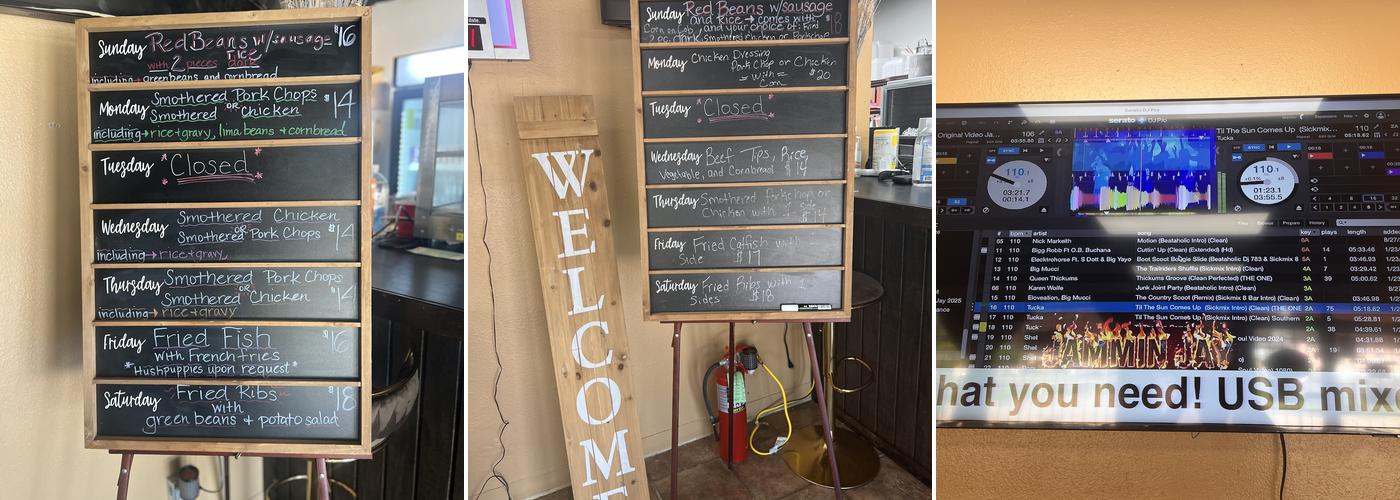 Sunday Red Beans w/sausage $16
rice
with 2 pieces dark
including → greenbeans and cornbread
Monday Smothered Pork Chops $14
OR
Smothered Chicken
including → rice + gravy, lima beans + cornbread
Tuesday *Closed*
Wednesday Smothered Chicken $14
OR
Smothered Pork Chops
including → rice + gravy
Thursday Smothered Pork Chops $14
OR
Smothered Chicken
including → rice + gravy
Friday Fried Fish $16
with French fries
*Hushpuppies upon request*
Saturday Fried Ribs $18
with
green beans + potato salad
Sunday Red Beans w/sausage
and Rice → comes with $18
Corn on Cob, and your choice of: Fried
2 pc. dark, Smothered Chicken or Porkchop
Monday Chicken Dressing
Pork Chop or Chicken
= with = $20
Corn
Tuesday *Closed*
Wednesday Beef Tips, Rice,
Vegetable, and Cornbread $14
Thursday Smothered Porkchop or
Chicken with $14
Friday Fried Catfish with
Side $17
Saturday Fried Ribs with 2
Sides $18
WELCOME
Serato DJ Pro
serato DJ Pro
Original Video Ja... 106 6A
Til The Sun Comes Up (Sickmix... 110
Tucka 05:18.62 2A
110.1
03:21.7
00:14.1
110.1
+0.1%
01:23.1
03:55.5
Files Browse Prepare History
# bpm artist song key plays length added
65 110 Nick Markeith Motion (Beataholic) (Clean) 6A
11 110 Bigg Robb Ft O.B. Buchana Cuttin' Up (Clean) (Extended) (Hd) 6A 14 05:33.46 1/23
12 110 Elecktrohorse Ft. S Dott & Big Yayo Boot Scoot Boogie Slide (Beataholic Dj 783 & Sickmix 8 5A 1 03:46.93 1/23
13 110 Big Mucci The Trailriders Shuffle (Sickmix Intro) (Clean) 4A 7 03:29.42 1/23
14 110 Queen Thickums Thickums Groove (Clean Perfected) (THE ONE) 3A 39 05:00.66 1/23
66 110 Karen Wolfe Junk Joint Party (Beataholic Intro) (Clean) 3A
15 110 Eloveation, Big Mucci The Country Scoot (Remix) (Sickmix 8 Bar Intro) (Clean) 3A 03:46.98 1/23
16 110 Tucka Til The Sun Comes Up (Sickmix Intro) (Clean) (THE ONE 2A 75 05:18.62 1/23
17 110 Tucka Til The Sun Comes Up (Sickmix Intro) (Clean) Southern 2A 5 05:28.81
18 110 2A 38 04:39.61
19 110 Shel oul Video 2024 2A 04:31.88
20 110 Shel 2A 19
21 110 Shel
ay 2025
JAMMIN JAY
hat you need! USB mixe